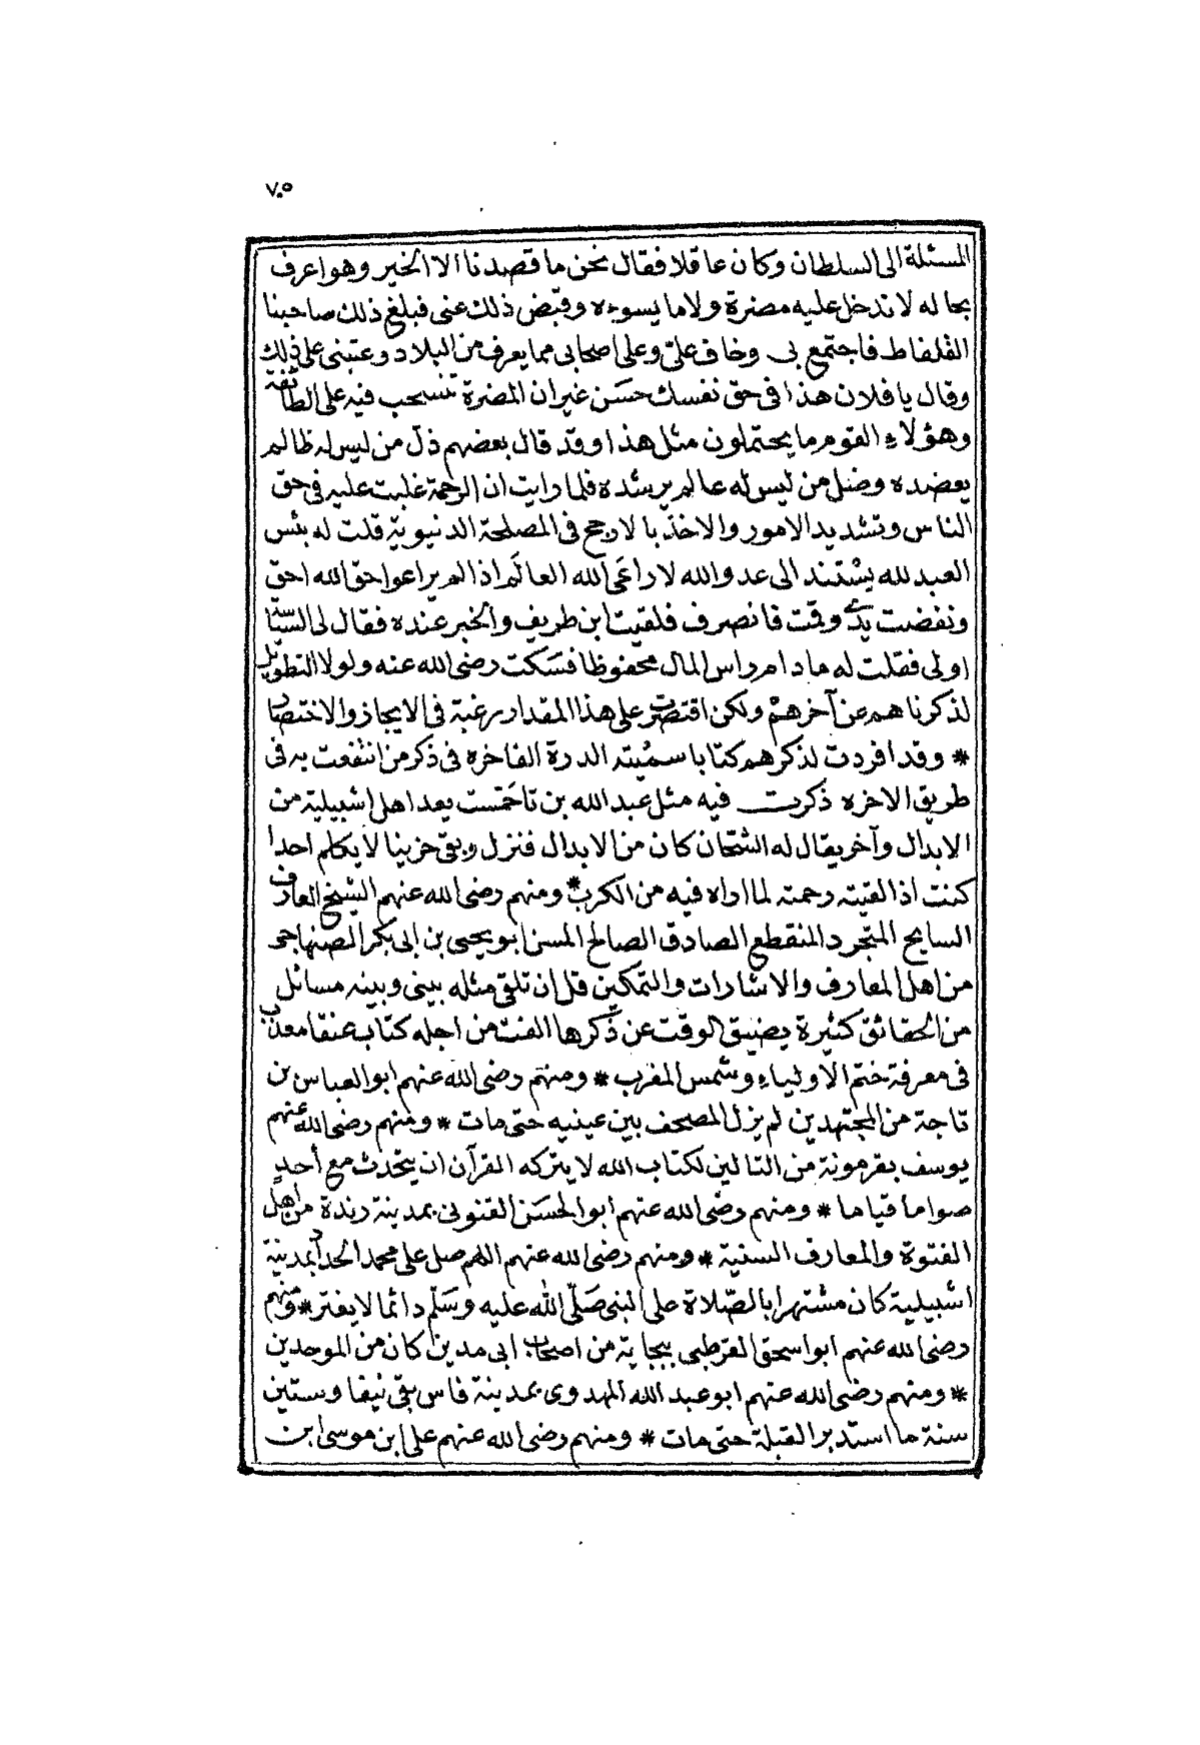 ٧٠٥
المسئلة الى السلطان وكان عاقلا فقال نحن ما قصدنا الا الخير وهو اعرف
بحاله لا تدخل عليه مضرة ولا ما يسوءه وقبض ذلك عنى فبلغ ذلك صاحبنا
القلفاط فاجتمع بى وخاف علىّ وعلى اصحابى مما يعرف من البلاد وعتبنى على ذلك
وقال يا فلان هذا فى حق نفسك حسَن غير ان المضرة تنسحب فيه على الطائفة
وهؤلاء القوم ما يحتملون مثل هذا وقد قال بعضهم ذلّ من ليس له ظالم
يعضده وضل من ليس له عالم يرشده فلما رايت ان الرحمة غلبت عليه فى حق
الناس وتشديد الامور والاخذ بالارجح فى المصلحة الدنيوية قلت له بئس
العبد لله يستند الى عدو الله لا راعَى الله العالَم اذا لم يراعوا حق الله احق
ونفضت يدىّ وقمت فانصرف فلقيت ابن طريف والخبر عنده فقال لى السياسة
اولى فقلت له ما دام راس المال محفوظا فسَكت رضى الله عنه ولولا التطويل
لذكرناهم عن آخرهم ولكن اقتصرت على هذا المقدار رغبة فى الايجاز والاختصار
* وقد افردت لذكرهم كتابا سميته الدرة الفاخره فى ذكر من انتفعت به فى
طريق الاخره ذكرت فيه مثل عبد الله بن تاخمست يعد اهل اشبيلية من
الابدال وآخر يقال له الشحان كان من الابدال فنزل وبقى حزينا لا يكلم احدا
كنت اذا لقيته رحمته لما اراه فيه من الكرب * ومنهم رضى الله عنهم الشيخ العارف
السايح المتجرد المنقطع الصادق الصالح المسن ابو يحيى بن ابى بكر الصنهاجى
من اهل المعارف والاشارات والتمكين قل ان تلقى مثله بينى وبينه مسائل
من الحقائق كثيرة يضيق الوقت عن ذكرها الفت من اجله كتاب عنقا مغرب
فى معرفة ختم الاولياء وشمس المغرب * ومنهم رضى الله عنهم ابو العباس بن
تاجة من المجتهدين لم يزل المصحف بين عينيه حتى مات * ومنهم رضى الله عنهم
يوسف بقرمونة من التالين لكتاب الله لا يتركه القرآن ان يتحدث مع أحدٍ
صواما قياما * ومنهم رضى الله عنهم ابو الحسَن القنونى بمدينة رندة من اهل
الفتوة والمعارف السنية * ومنهم رضى الله عنهم اللهم صل على محمد الحداد بمدينة
اشبيلية كان مشتهرا بالصّلاة على النبى صَلّى الله عليه وسَلّم دائما لا يفتر * ومنهم
رضى الله عنهم ابو اسحق القرطبى ببجاية من اصحاب ابى مدين كان من الموحدين
* ومنهم رضى الله عنهم ابو عبد الله المهدوى بمدينة فاس بقى نيفا وستين
سنة ما استدبر القبلة حتى مات * ومنهم رضى الله عنهم على ابن موسى ابن